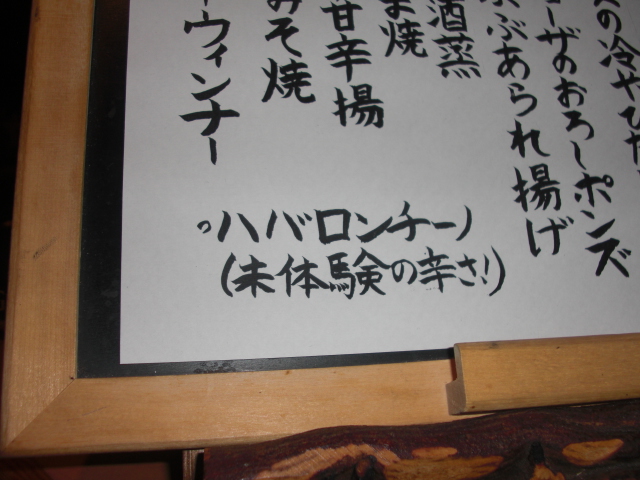 の冷やひや
ーザのおろしポンズ
ぶあられ揚げ
酒蒸
ま焼
甘辛揚
みそ焼
ーウィンナー
ハバロンチーノ
(未体験の辛さ!)